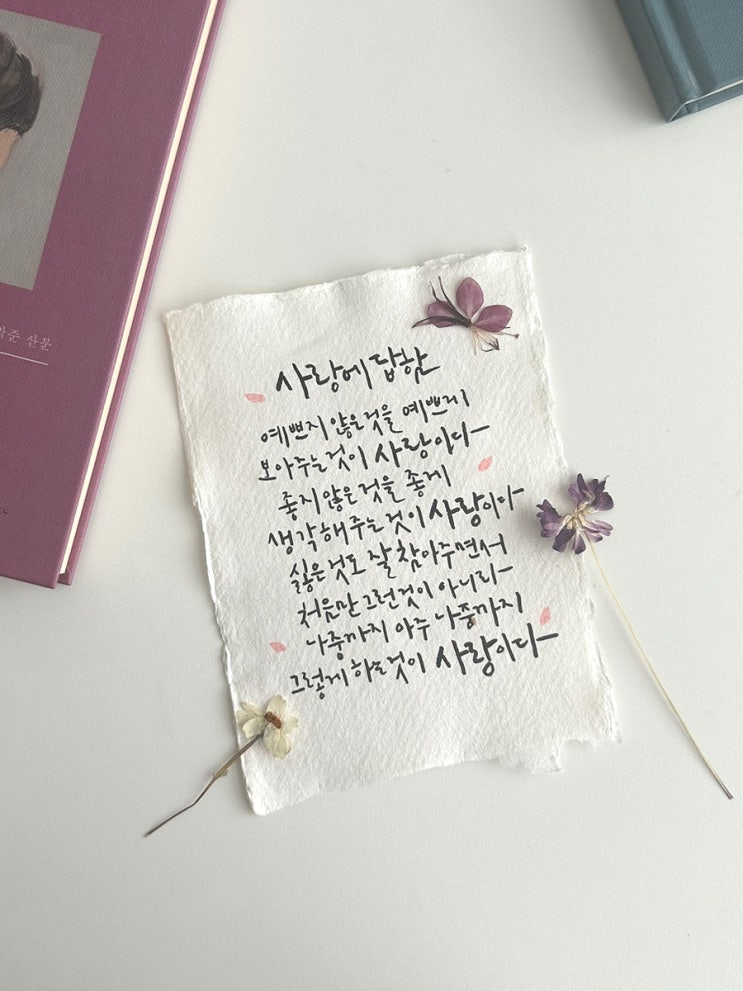 준 산문
사랑에 답함
예쁘지 않은 것을 예쁘게
보아주는 것이 사랑이다
좋지 않은 것을 좋게
생각해 주는 것이 사랑이다
싫은 것도 잘 참아주면서
처음만 그런 것이 아니라
나중까지 아주 나중까지
그렇게 하는 것이 사랑이다